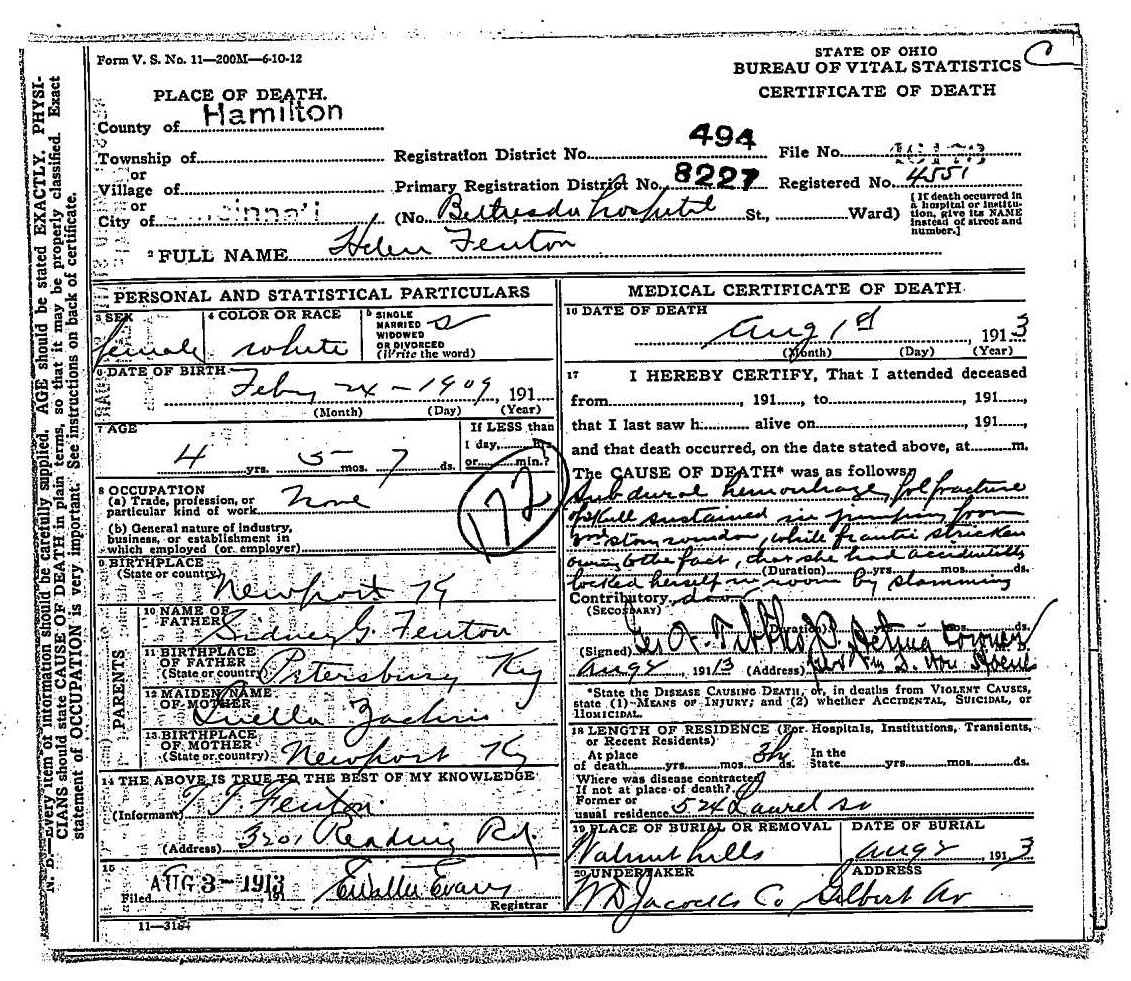 Form V. S. No. 11—200M—6-10-12
STATE OF OHIO
BUREAU OF VITAL STATISTICS
CERTIFICATE OF DEATH
C
PLACE OF DEATH.
County of Hamilton
Township of
or
Village of
or
City of
Registration District No. 494
File No.
Primary Registration District No. 8227
Registered No. 4551
(No. Bethesda hospital St., Ward)
[If death occurred in a hospital or institution, give its NAME instead of street and number.]
2 FULL NAME Helen Fenton
PERSONAL AND STATISTICAL PARTICULARS
3 SEX female
4 COLOR OR RACE white
5 SINGLE MARRIED WIDOWED OR DIVORCED (Write the word) S
6 DATE OF BIRTH Feby 24 - 1909, 191
(Month) (Day) (Year)
7 AGE
4 yrs. 5 mos. 7 ds.
If LESS than 1 day, hrs. or min.?
172
8 OCCUPATION
(a) Trade, profession, or particular kind of work None
(b) General nature of industry, business, or establishment in which employed (or employer)
9 BIRTHPLACE (State or country) Newport Ky
PARENTS
10 NAME OF FATHER Sidney G. Fenton
11 BIRTHPLACE OF FATHER (State or country) Petersburg Ky
12 MAIDEN NAME OF MOTHER Luella
13 BIRTHPLACE OF MOTHER (State or country) Newport Ky
14 THE ABOVE IS TRUE TO THE BEST OF MY KNOWLEDGE
(Informant) Fenton
(Address) 3201 Reading Rd.
15
Filed AUG 3- 1913 191 Evans
Registrar
11-3184
MEDICAL CERTIFICATE OF DEATH
16 DATE OF DEATH
Aug 1st, 1913
(Month) (Day) (Year)
17 I HEREBY CERTIFY, That I attended deceased
from , 191 , to , 191 ,
that I last saw h alive on , 191 ,
and that death occurred, on the date stated above, at m.
The CAUSE OF DEATH* was as follows:
Sub dural hemorrhage, fol fracture
of skull sustained in jumping from
story window, while frantic stricken
owing to the fact, that she had accidentally
(Duration) yrs. mos. ds.
locked herself in room by slamming
Contributory door
(SECONDARY)
(Duration)
(Signed) Geo Acting Coroner
Aug 2 1913 (Address) for
*State the DISEASE CAUSING DEATH, or, in deaths from VIOLENT CAUSES, state (1) MEANS OF INJURY; and (2) whether ACCIDENTAL, SUICIDAL, or HOMICIDAL.
18 LENGTH OF RESIDENCE (For Hospitals, Institutions, Transients, or Recent Residents)
At place of death yrs. mos. 3h ds. In the State yrs. mos. ds.
Where was disease contracted
If not at place of death?
Former or usual residence 524 Laurel st
19 PLACE OF BURIAL OR REMOVAL
Walnut hills
DATE OF BURIAL
Aug 2 1913
20 UNDERTAKER
Co
ADDRESS
Gilbert Av
N. B.—Every item of information should be carefully supplied. AGE should be stated EXACTLY. PHYSI-
CIANS should state CAUSE OF DEATH in plain terms, so that it may be properly classified. Exact
statement of OCCUPATION is very important. See instructions on back of certificate.